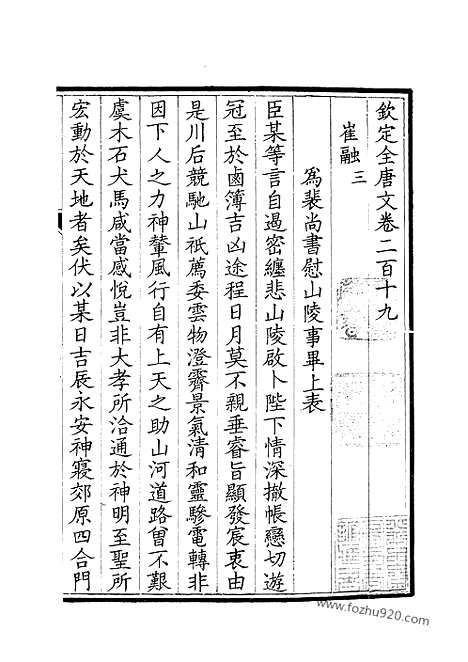 欽定全唐文卷二百十九
崔融三
爲裴尚書慰山陵事畢上表
臣某等言自遏密纏悲山陵啟卜陛下情深撤帳戀切遊
冠至於鹵簿吉凶途程日月莫不親垂睿旨顯發宸衷由
是川后競馳山祇薦委雲物澄霽景氣清和靈驂電轉非
因下人之力神輦風行自有上天之助山河道路曾不艱
虞木石犬馬咸當感悅豈非大孝所洽通於神明至聖所
宏動於天地者矣伏以某日吉辰永安神寢郊原四合門
www.fozhu920.com